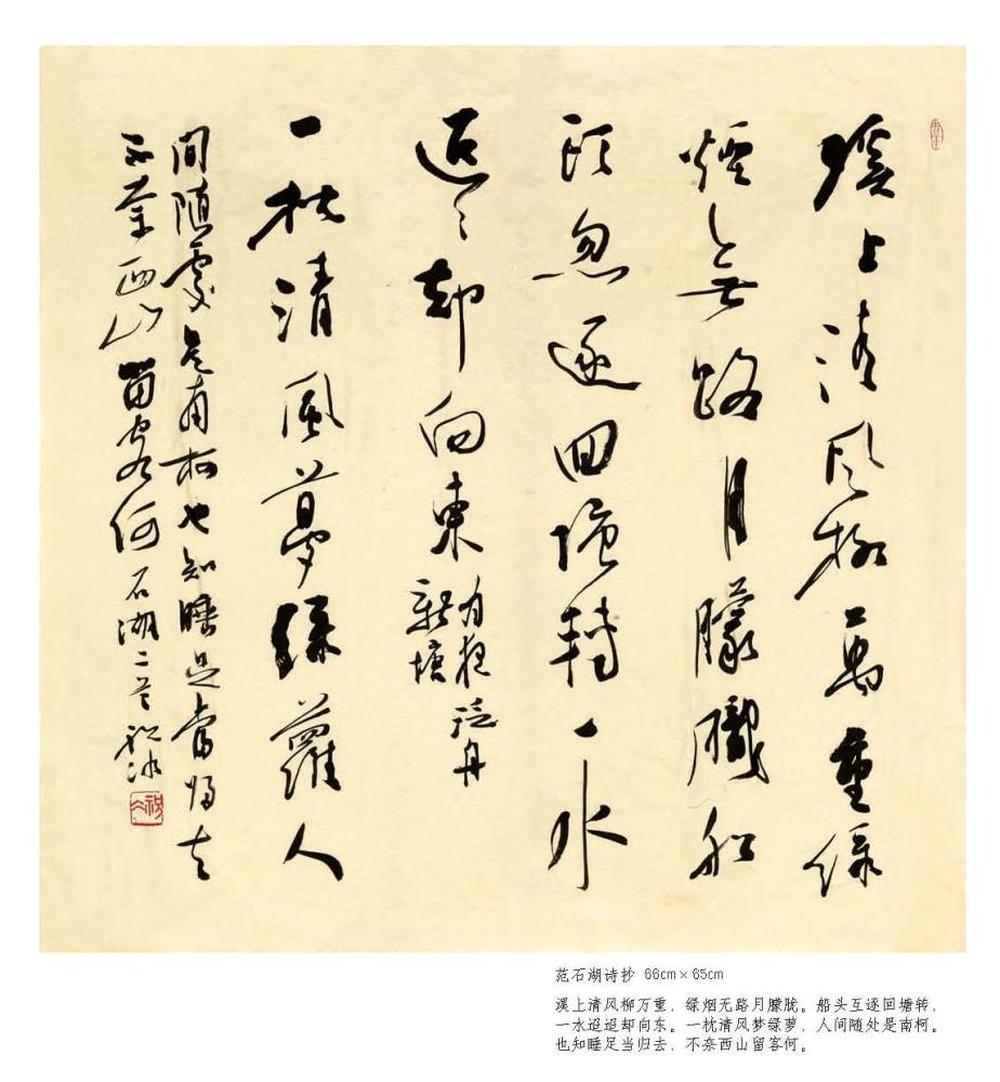 溪上清風柳萬重緑
煙無路月朦朧船
頭忽逐回塘轉一水
迢〻却向東
右夜泛舟
新塘
一枕清風夢緑蘿人
間随處是南柯也知睡足當歸去
不奈西山留客何 石湖二首 祝冰
范石湖诗抄 66cm×65cm
溪上清风柳万重，绿烟无路月朦胧。船头互逐回塘转，
一水迢迢却向东。一枕清风梦绿萝，人间随处是南柯。
也知睡足当归去，不奈西山留客何。